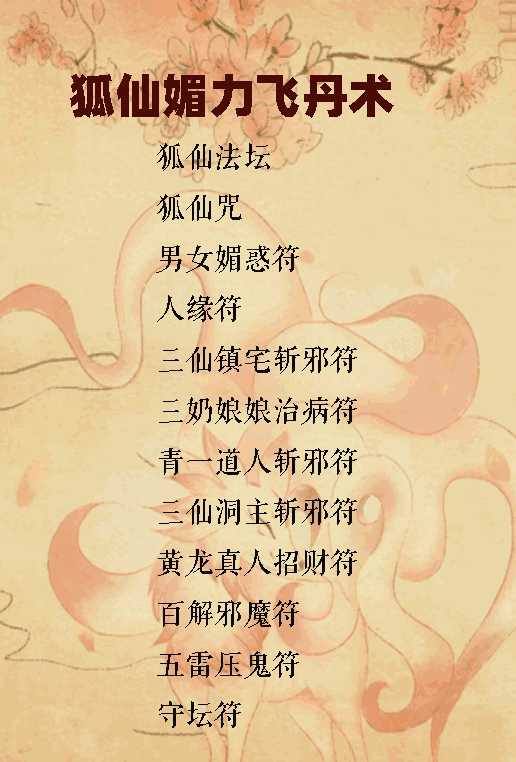 狐仙媚力飞丹术
狐仙法坛
狐仙咒
男女媚惑符
人缘符
三仙镇宅斩邪符
三奶娘娘治病符
青一道人斩邪符
三仙洞主斩邪符
黄龙真人招财符
百解邪魔符
五雷压鬼符
守坛符